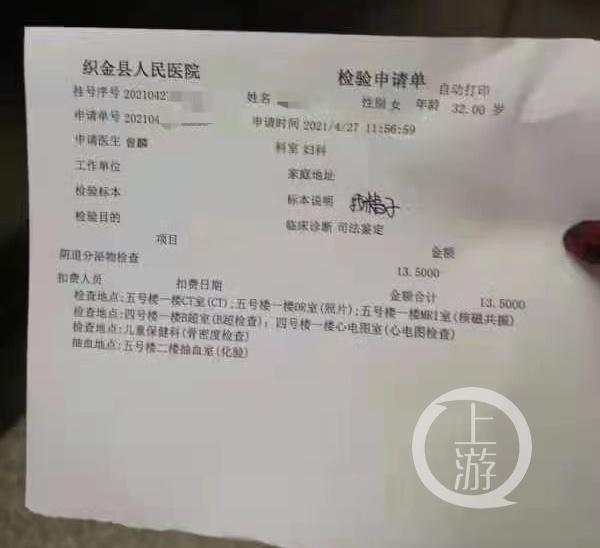 织金县人民医院
检验申请单 自动打印
挂号序号 2021042 姓名 性别 女 年龄 32.00 岁
申请单号 202104 申请时间 2021/4/27 11:56:59
申请医生 曾麟 科室 妇科
工作单位 家庭地址
检验标本 标本说明
检验目的 临床诊断 司法鉴定
项目 金额
阴道分泌物检查 13.5000
扣费人员 扣费日期 金额合计 13.5000
检查地点:五号楼一楼CT室(CT);五号楼一楼DR室(照片);五号楼一楼MRI室(核磁共振)
检查地点:四号楼一楼B超室(B超检查); 四号楼一楼心电图室(心电图检查)
检查地点:儿童保健科(骨密度检查)
抽血地点:五号楼二楼抽血室(化验)
上游